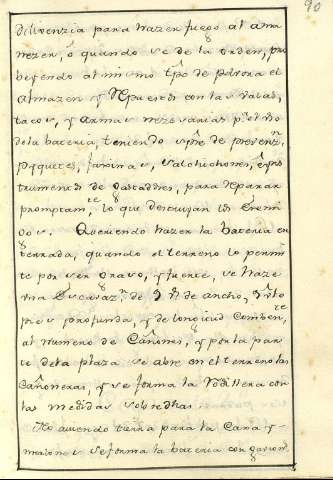 90
diligenzia para hazer fuego al ama
nezer, ó quando se de la orden, pro
beyendo al mismo tpô de polvora el
almazen y Repuestos con las valas,
tacos, y armas nezesarias pª el uso
de la bateria, teniendo spre de prevenzn
piquetes, faxinas, salchichones, é yns
trumentos de Gastadores, para Reparar
promptamte lo que destruyan los Enemi
gos. Queriendo hazer la bateria en
terrada, quando el terreno lo permi
te por ser Gravo, y fuerte, se haze
una Escavazn de de ancho,
pies profunda, y de longitud combente
al numero de Cañones, y por la par
te de la plaza se abre en el terreno las
Cañoneras, y se forma la Rodillera con
las medidas sobredhas.
No aviendo tierra para la Cara y
merlones se forma la bateria con gavions